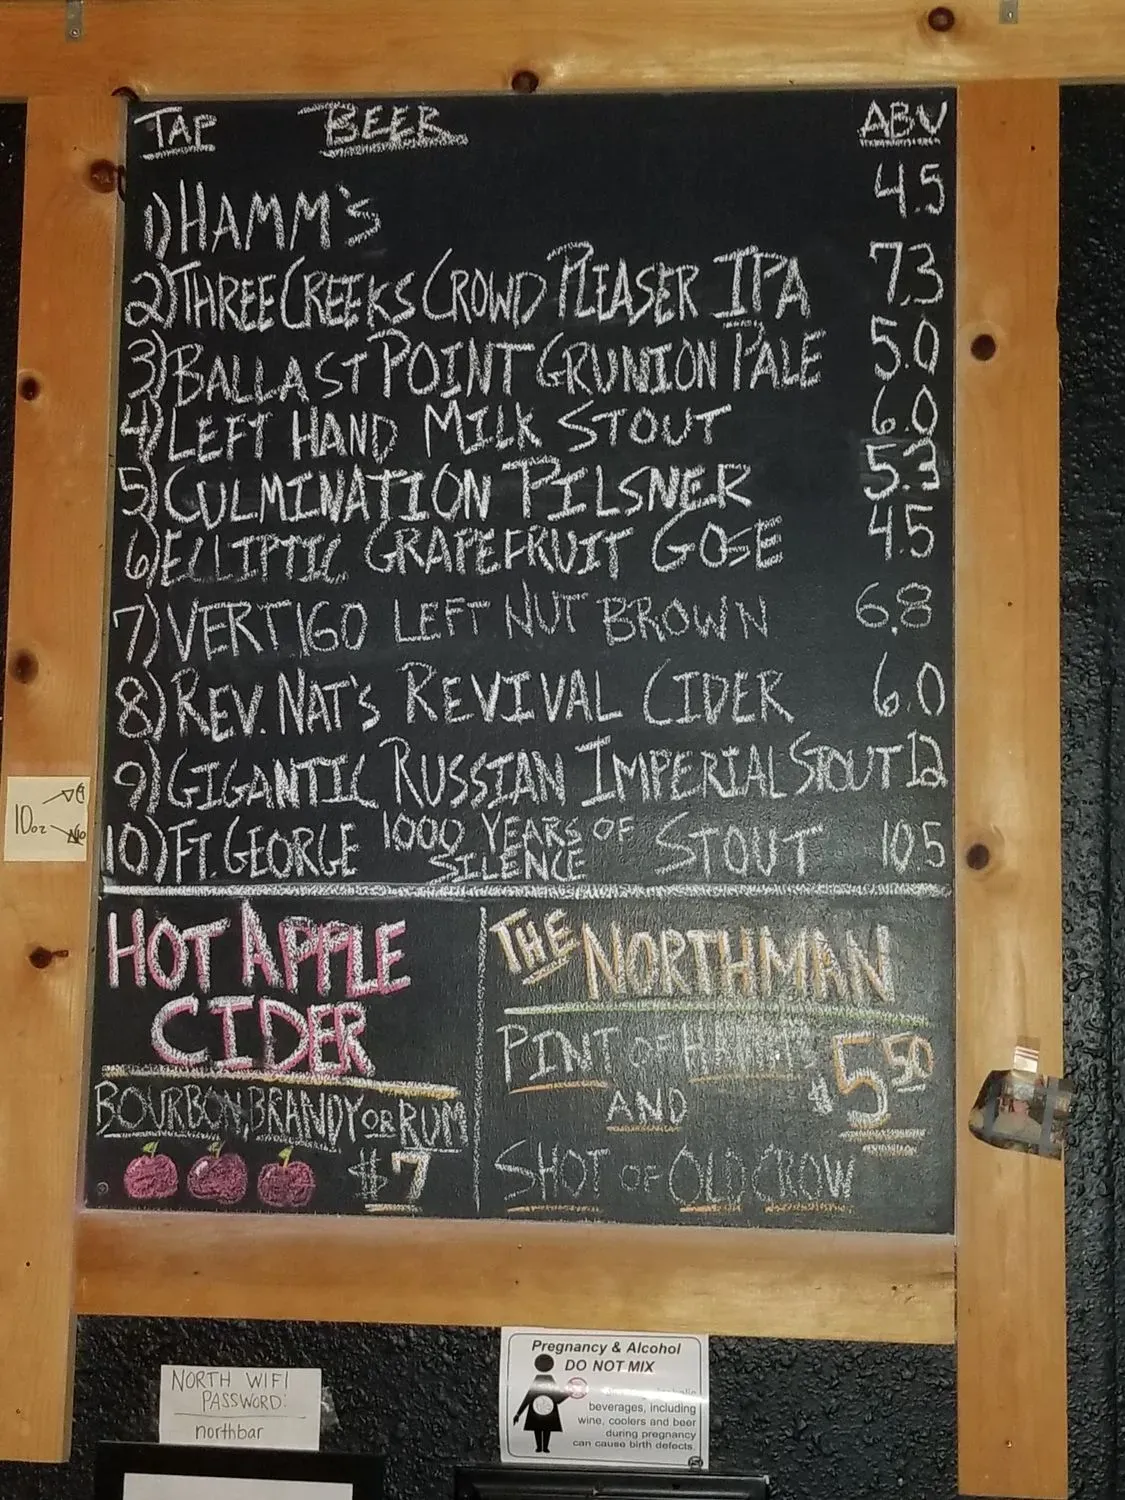 TAP BEER ABV
1) HAMM'S 4.5
2) THREE CREEKS CROWD PLEASER IPA 7.3
3) BALLAST POINT GRUNION PALE 5.0
4) LEFT HAND MILK STOUT 6.0
5) CULMINATION PILSNER 5.3
6) ECLIPTIC GRAPEFRUIT GOSE 4.5
7) VERTIGO LEFT NUT BROWN 6.8
8) REV. NAT'S REVIVAL CIDER 6.0
9) GIGANTIC RUSSIAN IMPERIAL STOUT 12
10) FT. GEORGE 1000 YEARS OF SILENCE STOUT 10.5
10oz
HOT APPLE
CIDER
BOURBON, BRANDY OR RUM
$7
THE NORTHMAN
PINT OF HAMM'S
$5.50
AND
SHOT OF OLD CROW
NORTH WIFI
PASSWORD:
northbar
Pregnancy & Alcohol
DO NOT MIX
beverages, including
wine, coolers and beer
during pregnancy
can cause birth defects.